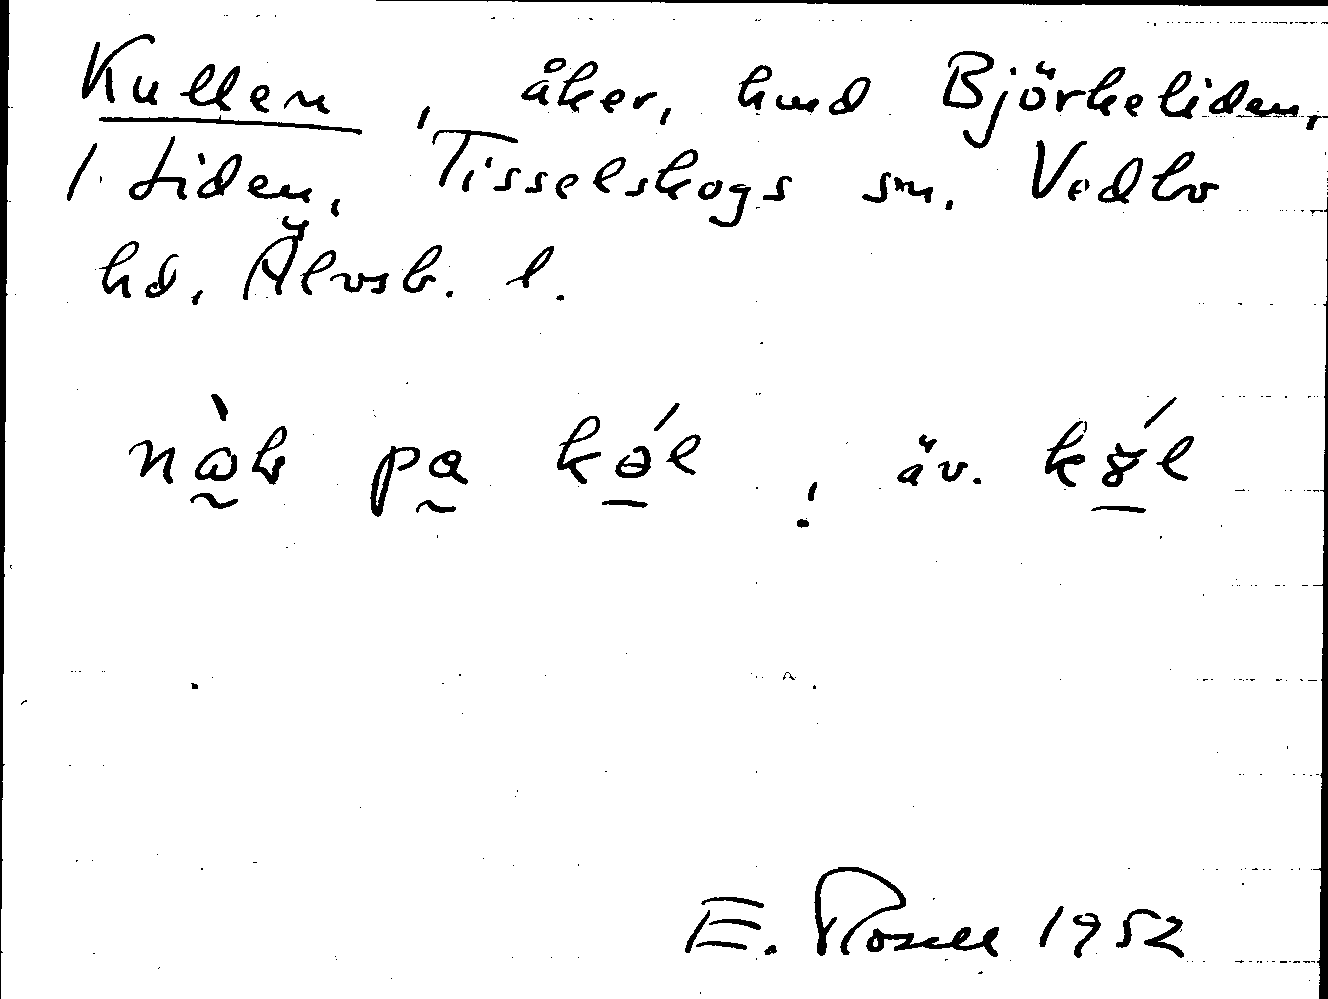 Kullen, åker, hmd Björkeliden,
1 Liden, Tisselskogs sn. Vedbo
hd. Älvsb. l.
pa
, äv.
E. Rosell 1952